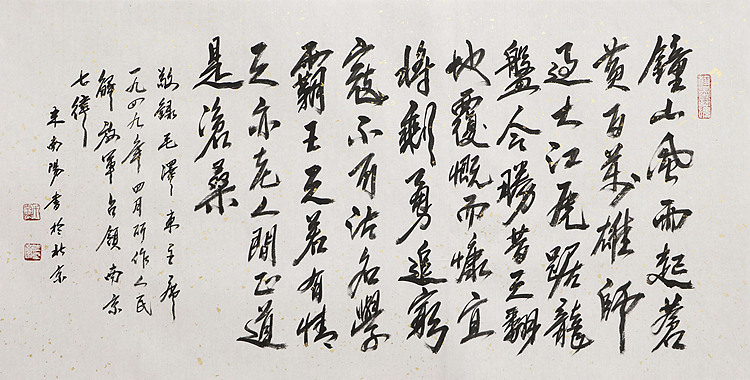 鐘山風雨起蒼
黄百萬雄師
過大江虎踞龍
盤今勝昔天翻
地覆慨而慷宜
將剩勇追窮
寇不可沽名學
霸王天若有情
天亦老人間正道
是滄桑
敬録毛澤東主席
一九四九年四月所作人民
解放軍占領南京
七律
南陽書於北京